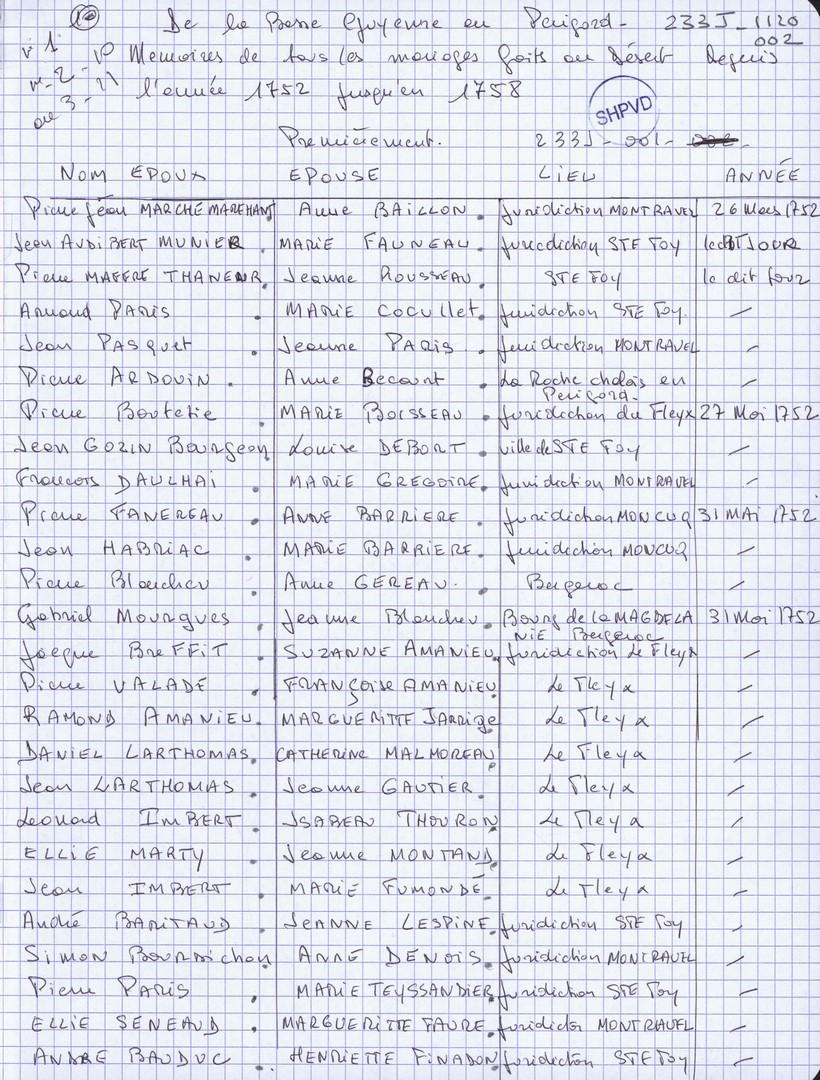 10 De la Basse Guyenne en Perigord - 233J-1120
002
v 1 - 1º Memoires de tous les mariages faits au Désert Depuis
v - 2 - 11 l'année 1752 jusqu'en 1758
ou 3 -
SHPVD
Premièrement. 233J - 001 -
NOM EPOUX EPOUSE LIEU ANNÉE
Pierre Jean MARCHE MAREHANT Anne BAILLON. Juridiction MONTRAVEL 26 Mars 1752
Jean AUDIBERT MUNIER. MARIE FAUNEAU. Juredichion STE FOY JOUR
Pierre MAFERE Jeanne ROUSSEAU. STE FOY le dit Jour
Arnaud PARIS . MARIE COCULLET. Juridiction STE Foy. -
Jean PASQUET . Jeanne PARIS . Juridiction MONTRAVEL -
Pierre ARDOUIN . Anne Becaunt . La Roche chalais en -
Perigord.
Pierre Boutetie . MARIE BOISSEAU . Juridiction du Fleyx 27 Mai 1752
Jean GOZIN Bourgeon Louise DEBORT . ville de STE FOY -
Francois DAULHAI . MARIE GREGOIRE. Juridiction MONTRAVEL -
Pierre FANEREAU . ANNE BARRIERE . Juridiction MONCUQ 31 MAI 1752
Jean HABRIAC . MARIE BARRIERE. Juridiction MONCUQ -
Pierre Blancheu . Anne GEREAU . Bergerac -
Gabriel Mourgues . Jeanne Blancheu. Bourg de la MAGDELA 31 Mai 1752
NIE Bergerac
Jacque BREFFIT . SUZANNE AMANIEU. Juridiction Le Fleyx -
Pierre VALADE . FRANÇOISE AMANIEU Le Fleyx -
RAMOND AMANIEU. MARGUERITTE JARRIGE Le Fleyx -
DANIEL LARTHOMAS. CATHERINE MALMOREAU Le Fleyx -
Jean LARTHOMAS . Jeanne GAUTIER. Le Fleyx -
Leonard IMBERT . ISABEAU THOURON Le Fleyx -
ELLIE MARTY . Jeanne MONTAND. Le Fleyx -
Jean IMBERT . MARIE FUMONDÉ. Le Fleyx -
André BARITAUD . JEANNE LESPINE. Juridiction STE Foy -
Simon Bournichon ANNE DENOIS. Juridiction MONTRAVEL -
Pierre PARIS . MARIE TEYSSANDIER. Juridiction STE Foy -
ELLIE SENEAUD . MARGUERITTE FAURE. Juridicton MONTRAVEL -
ANDRE BAUDUC . HENRIETTE FINADON Juridicton STE Foy -